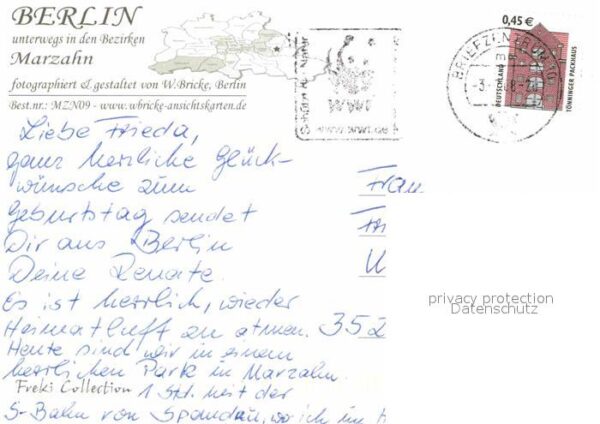 BERLIN
unterwegs in den Bezirken
Marzahn
fotographiert & gestaltet von W.Bricke, Berlin
Best.nr.: MZN09 - www.wbricke-ansichtskarten.de
0,45 €
DEUTSCHLAND
TÖNNINGER PACKHAUS
BRIEFZENTRUM
Liebe Frieda,
ganz herzliche Glück-
wünsche zum
Geburtstag sendet
Dir aus Berlin
Deine Renate.
Es ist herrlich, wieder
Heimatluft zu atmen.
Heute sind wir in einem
herrlichen Park in Marzahn.
1 Std. mit der
S-Bahn von Spandau, wo ich im
Frau
352
privacy protection
Datenschutz
Freki Collection